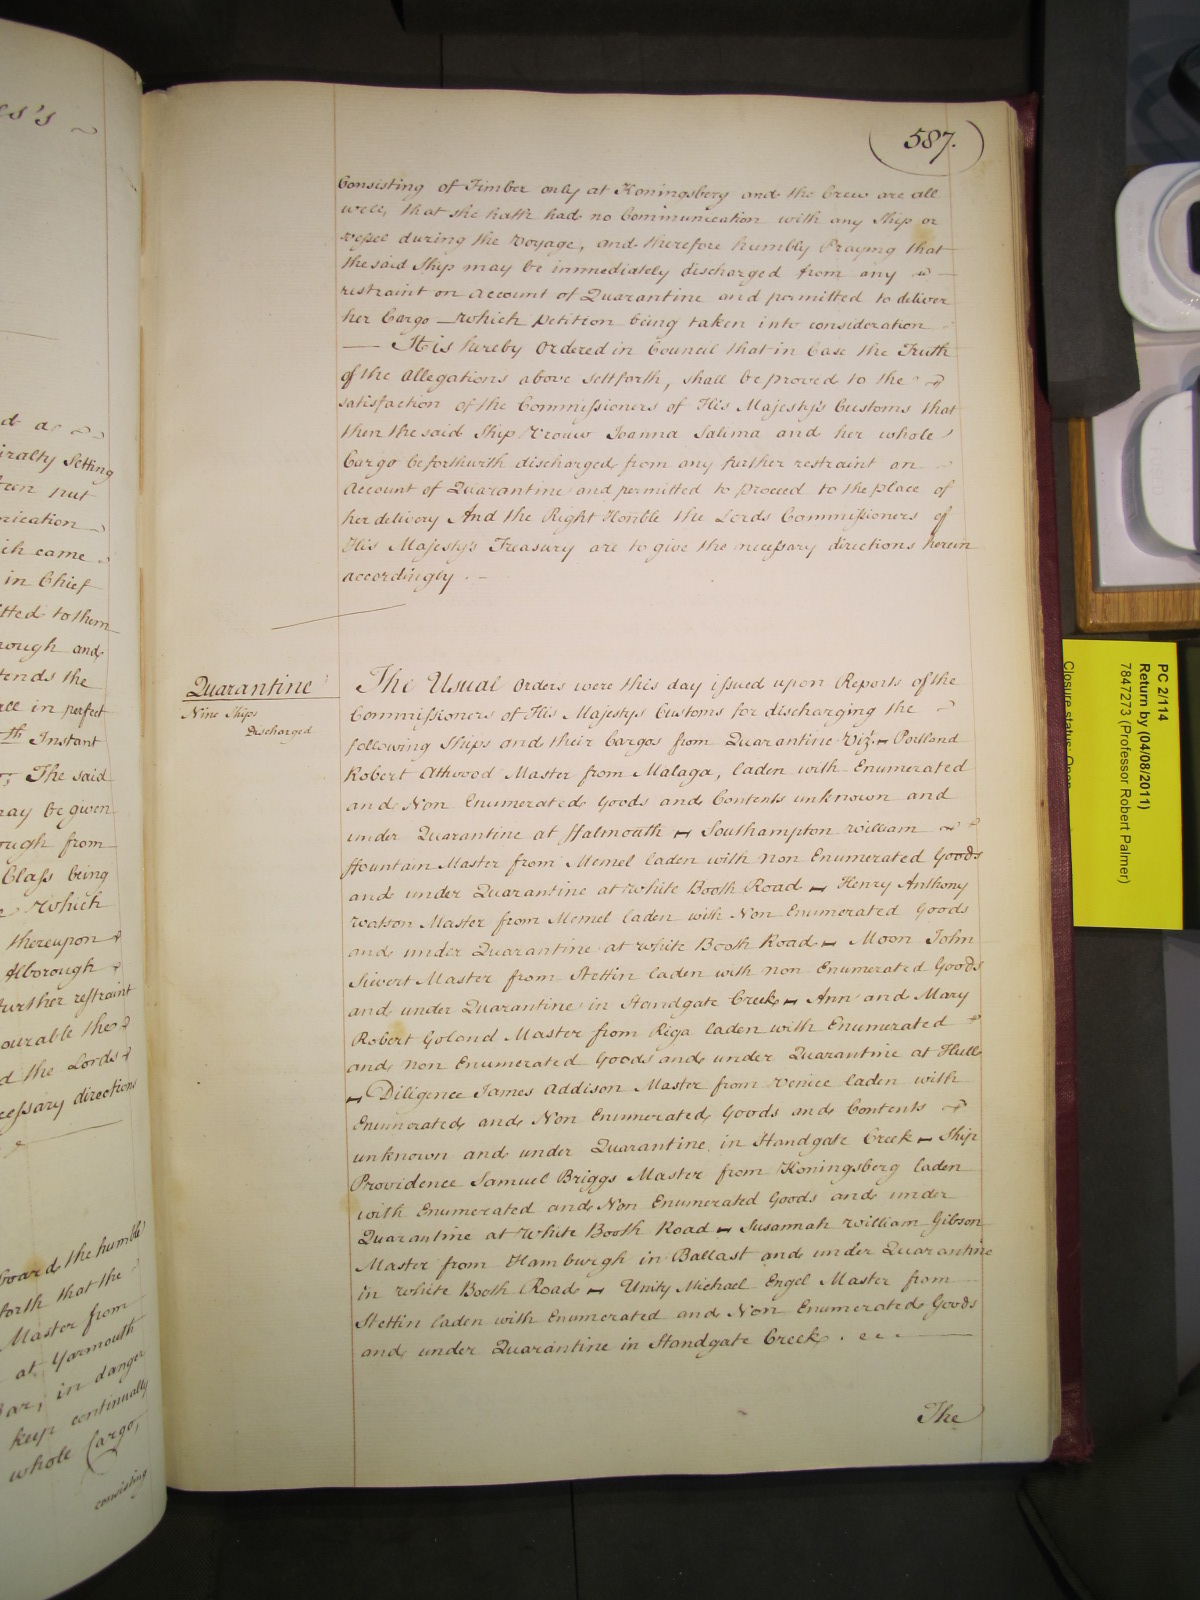 es's
d a
iralty Setting
een put
nication
ich came
in Chief
itted to them
rough and
tends the
all in perfect
th Instant
The said
may be given
ough from
Class being
Which
thereupon
Alborough
further restraint
ourable the
d the Lords
cessary directions
board the humble
forth that the
Master from
at Yarmouth
Bar, in danger
keep continually
whole Cargo,
consisting
587.
Consisting of Timber only at Koningsberg and the Crew are all
well, that she hath had no Communication with any Ship or
vessel during the Voyage, and therefore humbly Praying that
the said Ship may be immediately discharged from any
restraint on Account of Quarantine and permitted to deliver
her Cargo — Which petition being taken into consideration
— It is hereby Ordered in Council that in Case the Truth
of the Allegations above settforth, shall be proved to the
satisfaction of the Commissioners of His Majesty's Customs that
then the said Ship Vrouw Joanna Salima and her whole
Cargo be forthwith discharged from any further restraint on
Account of Quarantine and permitted to proceed to the place of
her delivery And the Right Honble the Lords Commissioners of
His Majesty's Treasury are to give the necessary directions herein
accordingly . -
Quarantine
Nine Ships
Discharged
The Usual Orders were this day issued upon Reports of the
Commissioners of His Majestys Customs for discharging the
following Ships and their Cargos from Quarantine Vizt. – Portland
Robert Attwood Master from Malaga, laden with Enumerated
and Non Enumerated Goods and Contents unknown and
under Quarantine at ffalmouth – Southampton William
ffountain Master from Memel laden with Non Enumerated Goods
and under Quarantine at White Booth Road – Henry Anthony
Watson Master from Memel laden with Non Enumerated Goods
and under Quarantine at White Booth Road – Moon John
Siwert Master from Stettin laden with non Enumerated Goods
and under Quarantine in Standgate Creek – Ann and Mary
Robert Goland Master from Riga laden with Enumerated
and non Enumerated Goods and under Quarantine at Hull
– Diligence James Addison Master from Venice laden with
Enumerated and Non Enumerated Goods and Contents
unknown and under Quarantine in Standgate Creek – Ship
Providence Samuel Briggs Master from Koningsberg laden
with Enumerated and Non Enumerated Goods and under
Quarantine at White Booth Road – Susannah William Gibson
Master from Hamburgh in Ballast and under Quarantine
in White Booth Road – Unity Michael Engel Master from
Stettin laden with Enumerated and Non Enumerated Goods
and under Quarantine in Standgate Creek .
The
PC 2/114
Return by (04/08/2011)
7847273 (Professor Robert Palmer)
Closure status: Open